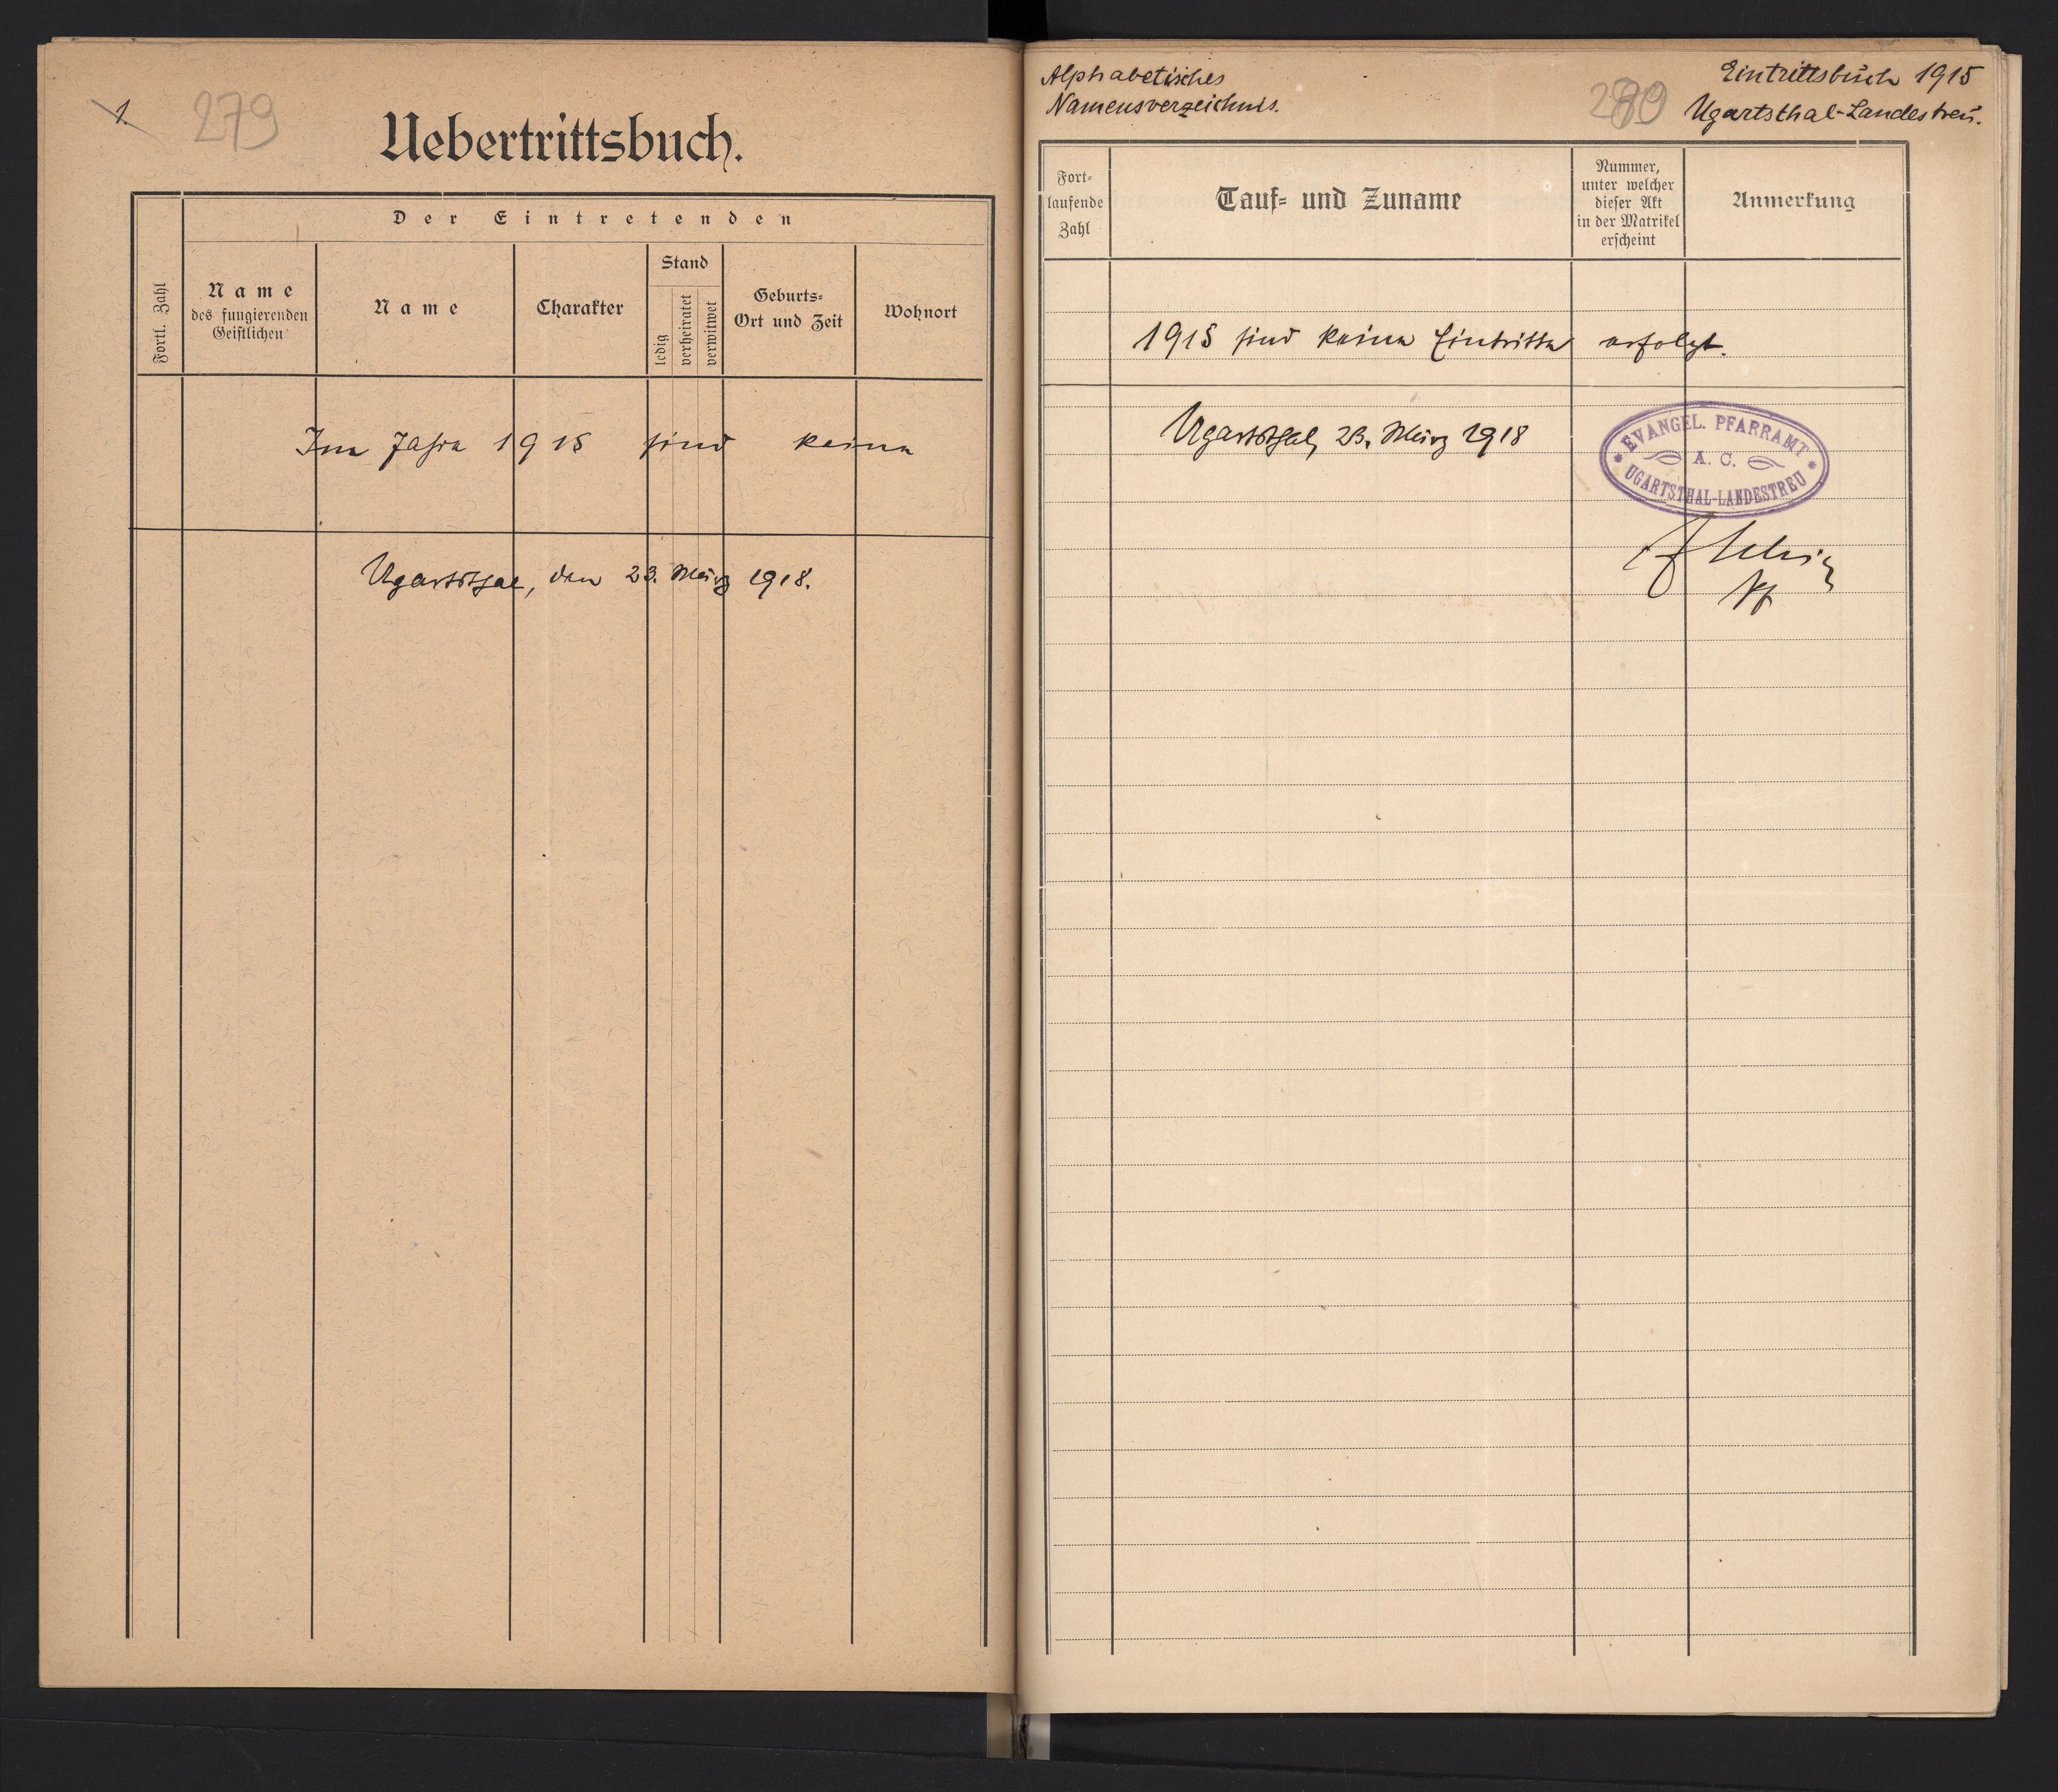 1.
279
Uebertrittsbuch.
Der Eintretenden
Fortl. Zahl
Name
des fungierenden
Geistlichen
Name
Charakter
Stand
ledig
verheiratet
verwitwet
Geburts-
Ort und Zeit
Wohnort
Im Jahre 1915 sind keine
Ugartsthal, den 23. März 1918.
Alphabetisches
Namensverzeichnis.
Eintrittsbuch 1915
Ugartsthal-Landestreu.
Fort-
laufende
Zahl
Tauf- und Zuname
Nummer,
unter welcher
dieser Akt
in der Matrikel
erscheint
Anmerkung
1915 sind keine Eintritte erfolgt.
Ugartsthal, 23. März 1918
EVANGEL. PFARRAMT
A. C.
UGARTSTHAL-LANDESTREU
Pf